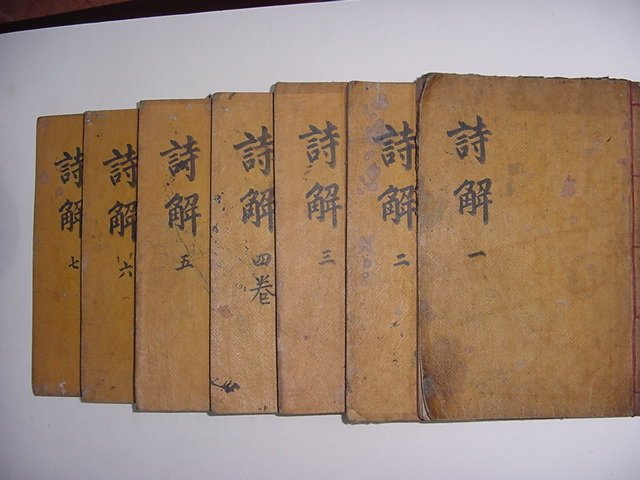 詩解 一
詩解 二
詩解 三
詩解 四卷
詩解 五
詩解 六
詩解 七